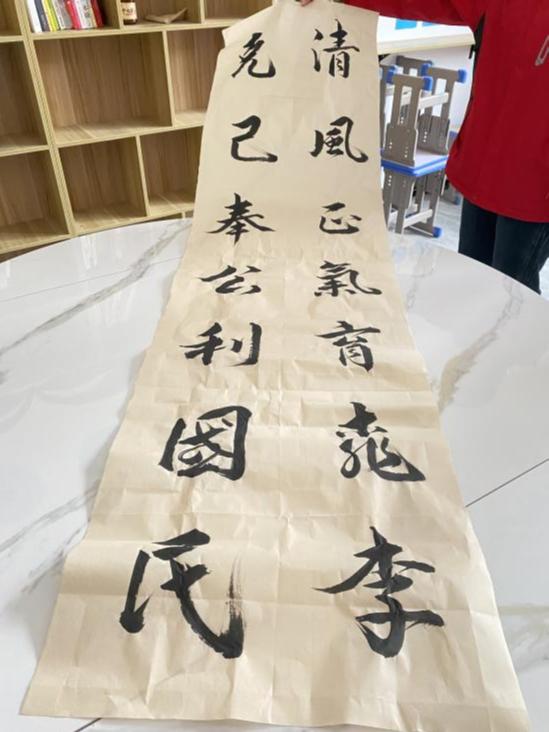 清風正氣育桃李
克己奉公利國民